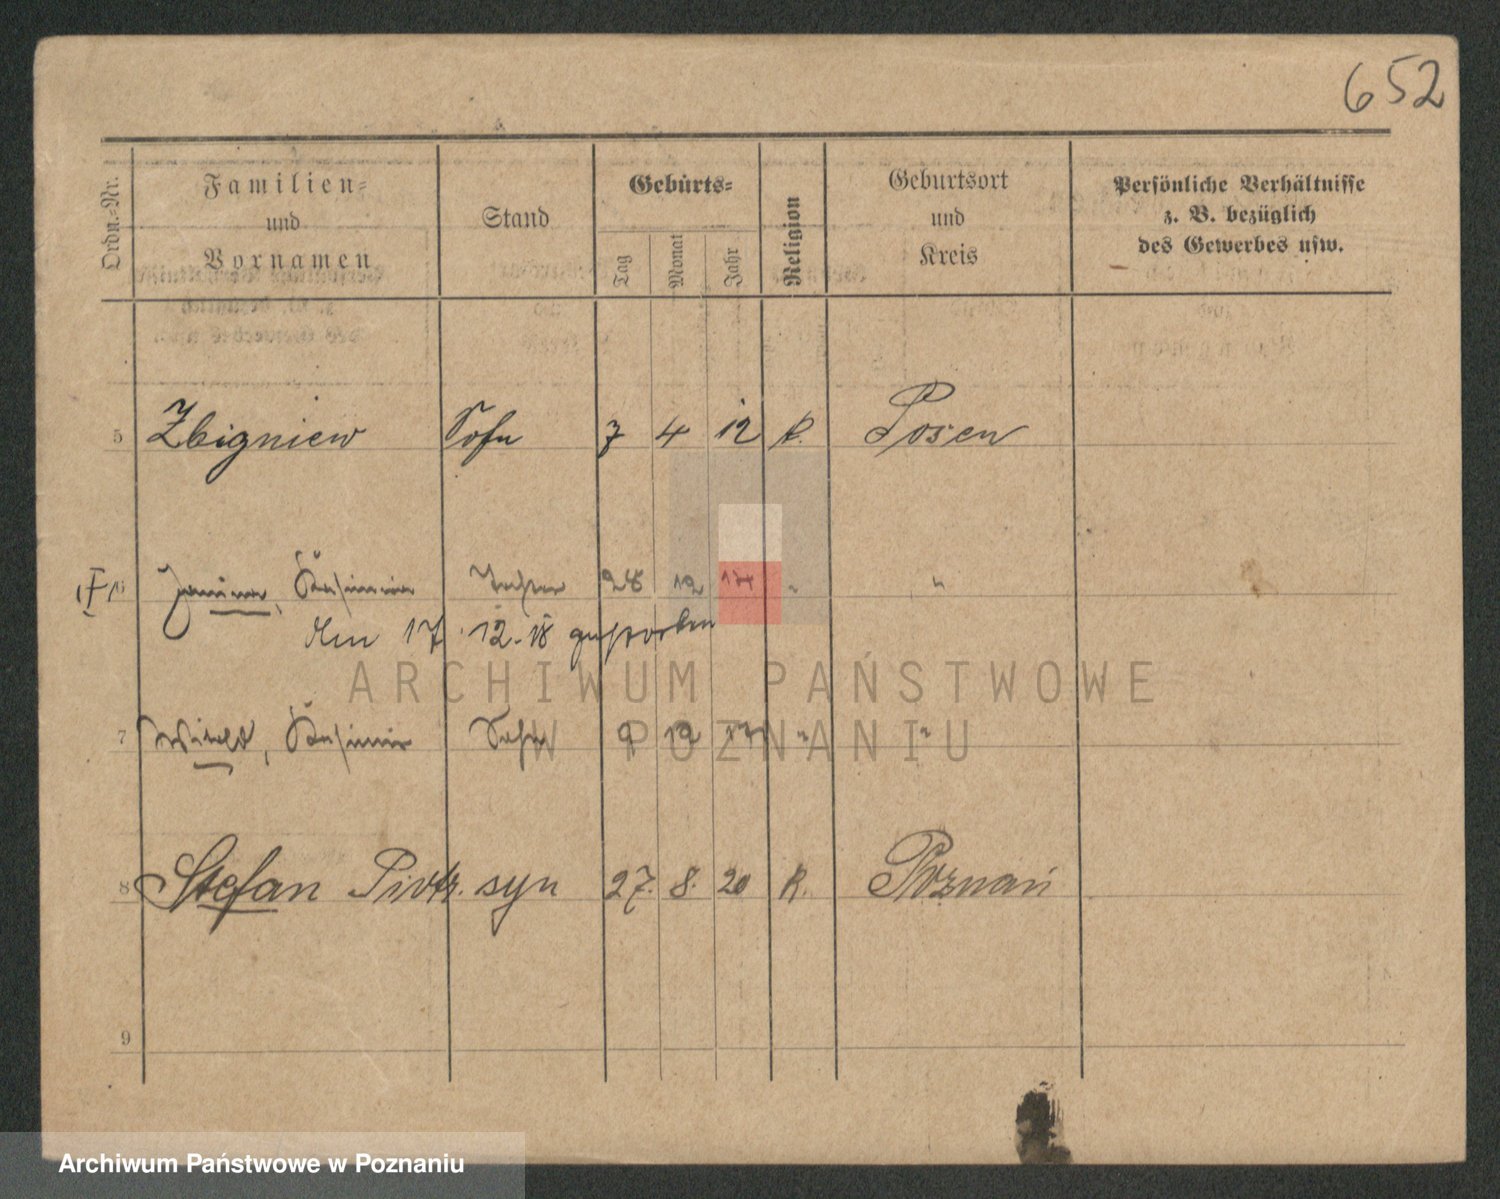 652
Ordn.-Nr.
Familien-
und
Vornamen
Stand
Geburts-
Tag
Monat
Jahr
Religion
Geburtsort
und
Kreis
Persönliche Verhältnisse
z. B. bezüglich
des Gewerbes usw.
5 Zbigniew Sohn 7 4 12 k. Posen
6 Janina, Kasimira Tochter 28 12 14 " "
Am 17. 12. 18 gestorben
7 Witold, Kasimir Sohn 9 12 17 " "
8 Stefan Piotr. syn 27. 8. 20 k. Poznań
9
ARCHIWUM PAŃSTWOWE
W POZNANIU
Archiwum Państwowe w Poznaniu